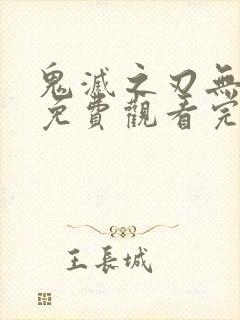 鬼滅之刃無
免費觀看完
王長城